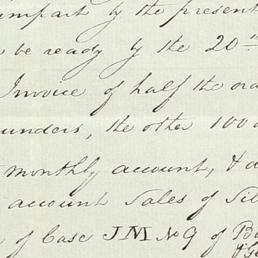 impart by the present
be ready by the 20th
Invoice of half the
the other 100
monthly account, &
account Sales of
of Case JM No 9 of